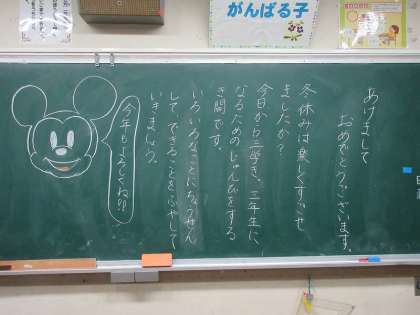 がんばる子
あけまして
おめでとうございます。
冬休みは楽しくすごせ
ましたか?
今日から三学き、三年生に
なるためのじゅんびをする
き間です。
いろいろなことにちょうせん
して、できることをふやして
いきましょう。
今年もよろしくね!!